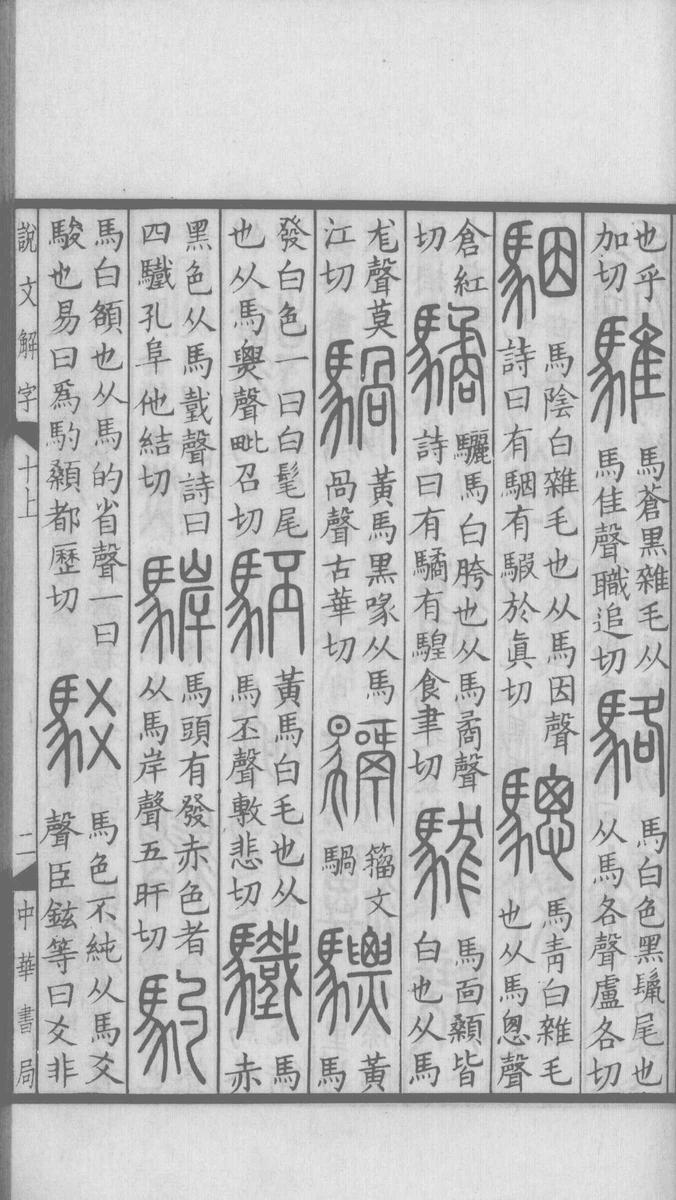 也乎
加切
騅
馬蒼黑雜毛从
馬隹聲職追切
駱
馬白色黑鬛尾也
从馬各聲盧各切
駰
馬陰白雜毛也从馬因聲
詩曰有駰有騢於眞切
驄
馬青白雜毛
也从馬悤聲
倉紅
切
驈
驪馬白胯也从馬矞聲
詩曰有驈有騜食聿切
駹
馬面顙皆
白也从馬
尨聲莫
江切
騧
黃馬黑喙从馬
咼聲古華切
籒文
騧
驃
黃
馬
發白色一曰白髦尾
也从馬㶾聲毗召切
駓
黃馬白毛也从
馬丕聲敷悲切
驖
馬
赤
黑色从馬𢧜聲詩曰
四驖孔阜他結切
䮗
馬頭有發赤色者
从馬岸聲五旰切
馰
馬白頟也从馬的省聲一曰
駿也易曰爲馰顙都歷切
駁
馬色不純从馬爻
聲臣鉉等曰爻非
說文解字
十上
二
中華書局